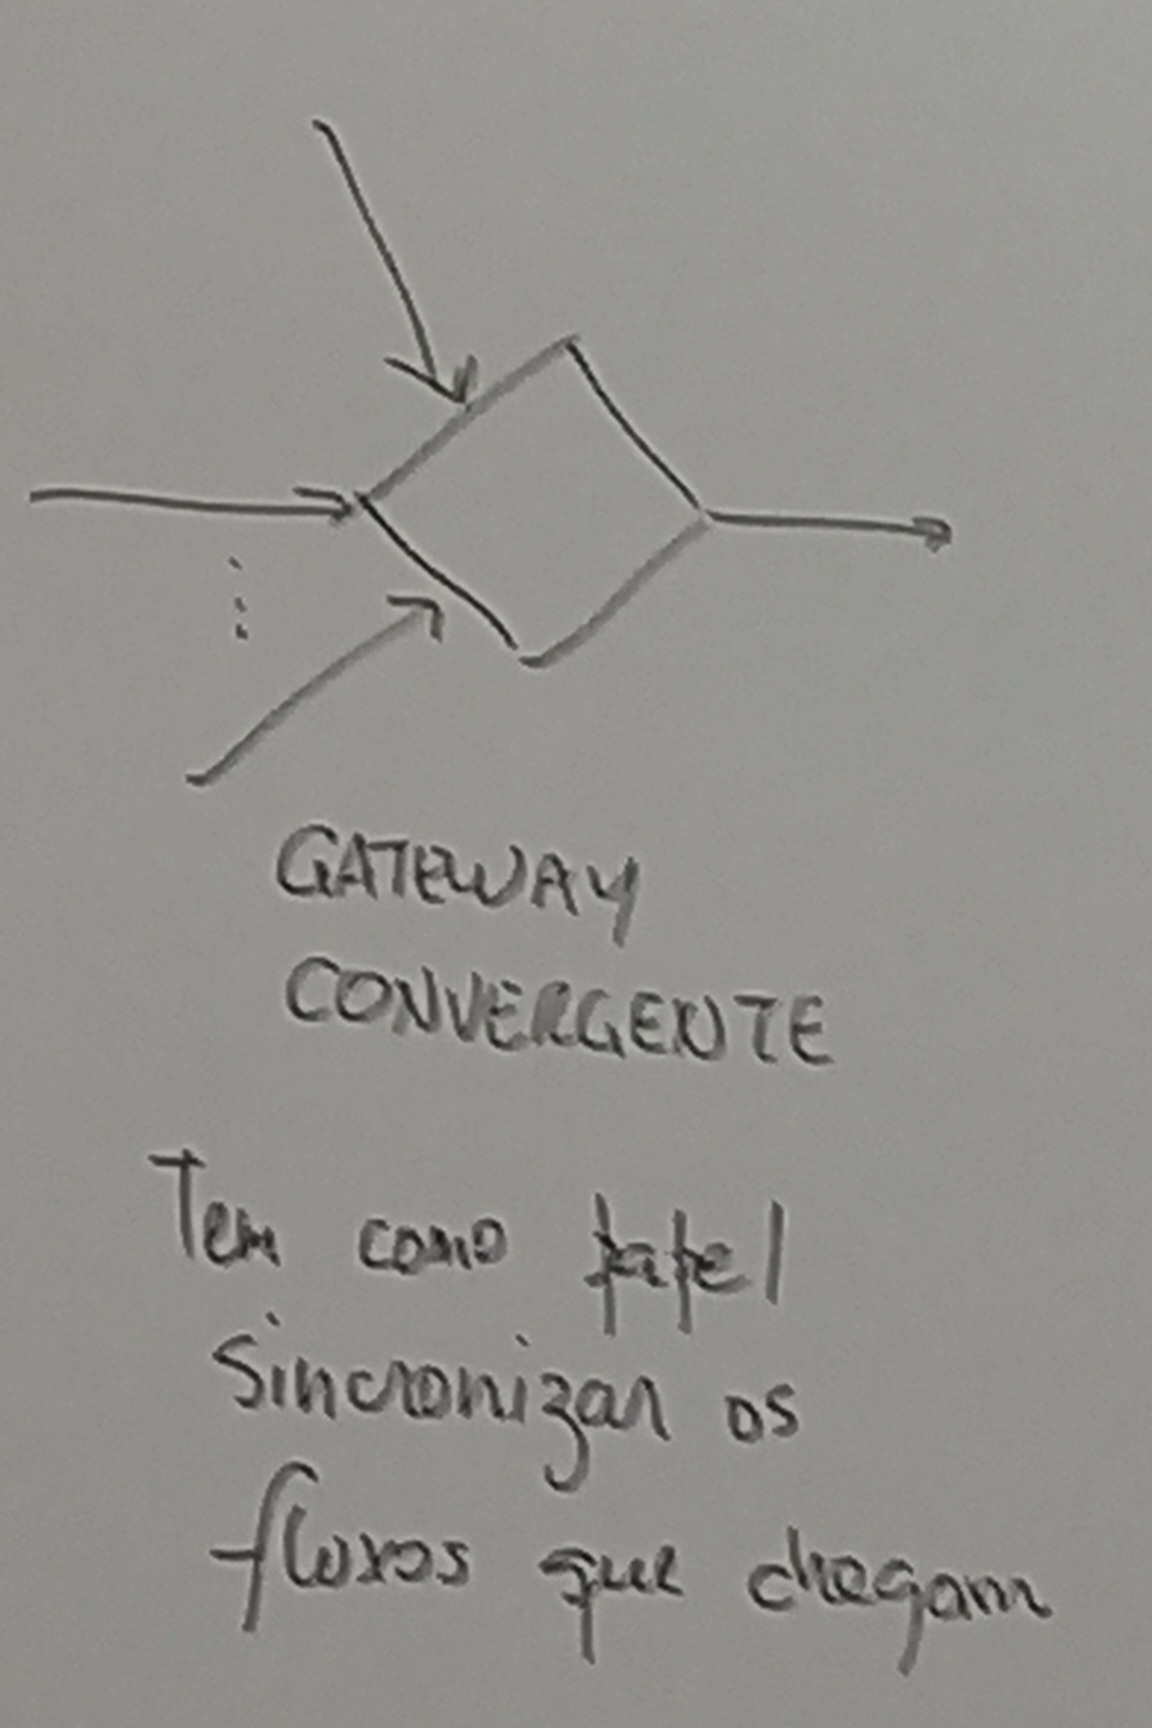 GATEWAY
CONVERGENTE
Tem como papel
sincronizar os
fluxos que chegam